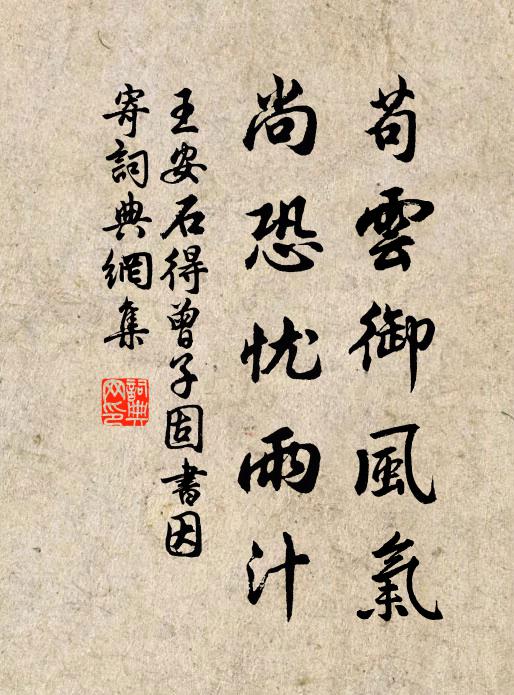 苟雲御風氣
尚恐忧雨汁
王安石得曾子固書因
寄詞典網集
詞典
网印